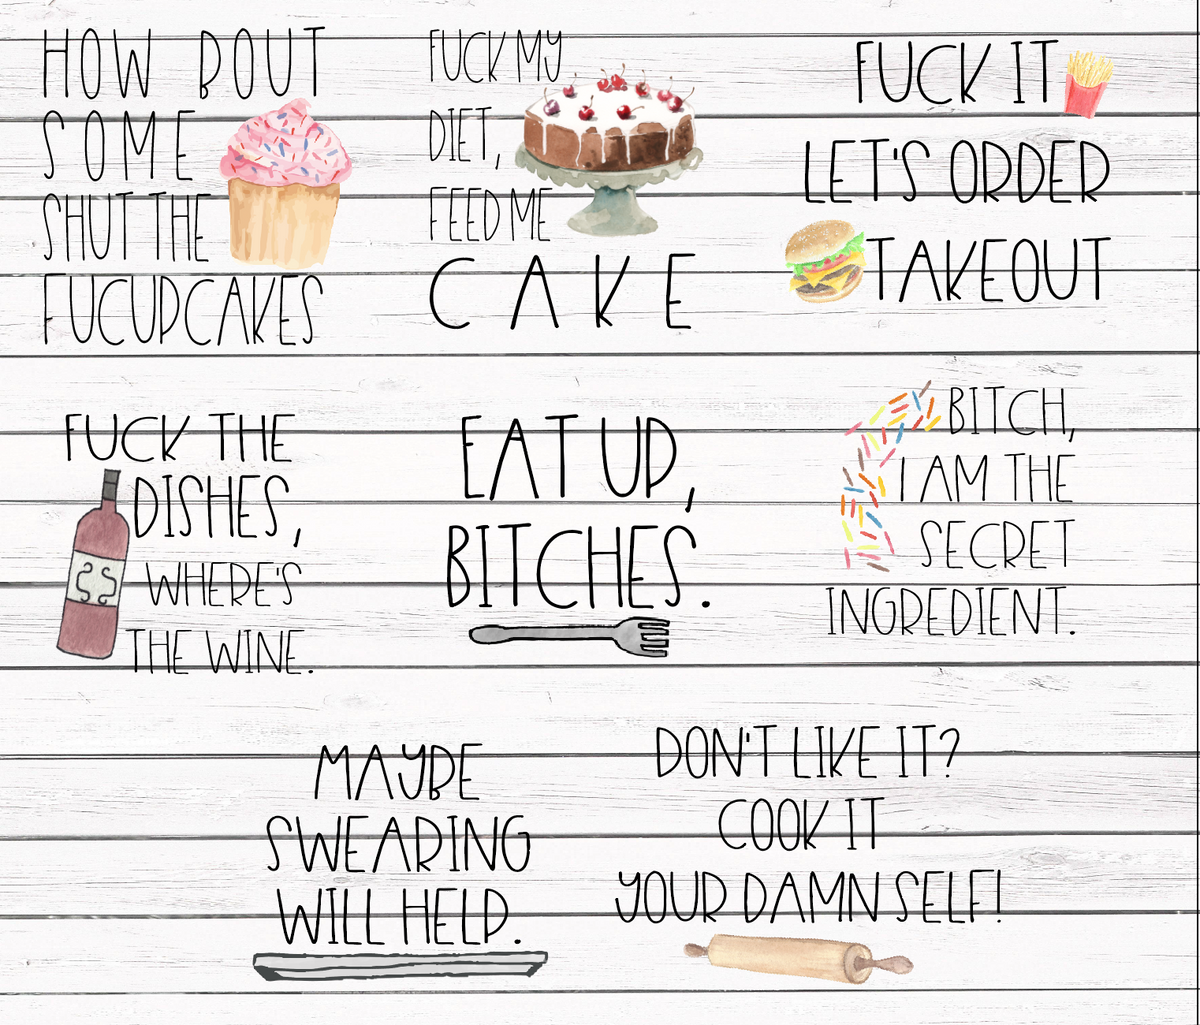 HOW BOUT
SOME
SHUT THE
FUCUPCAKES
FUCK MY
DIET,
FEED ME
CAKE
FUCK IT
LET'S ORDER
TAKEOUT
FUCK THE
DISHES,
WHERE'S
THE WINE.
EAT UP,
BITCHES.
BITCH,
I AM THE
SECRET
INGREDIENT.
MAYBE
SWEARING
WILL HELP.
DON'T LIKE IT?
COOK IT
YOUR DAMN SELF!